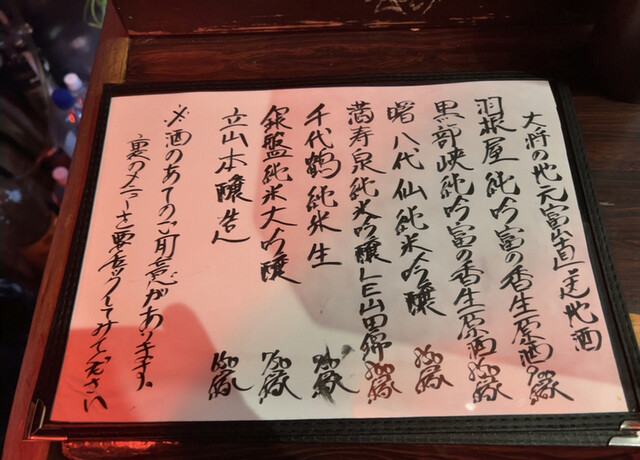 大将の地元富山直送地酒
羽根屋 純吟 富の香 生原酒 縁
黒部峡 純吟 富の香 生原酒 縁
曙 八代仙 純米吟醸 縁
満寿泉 純米吟醸 LE山田錦 縁
千代鶴 純米 生 縁
銀盤 純米大吟醸 縁
立山 本醸造 縁
※酒のあてのご用意があります。
裏のメニューを要チェックしてみて下さい